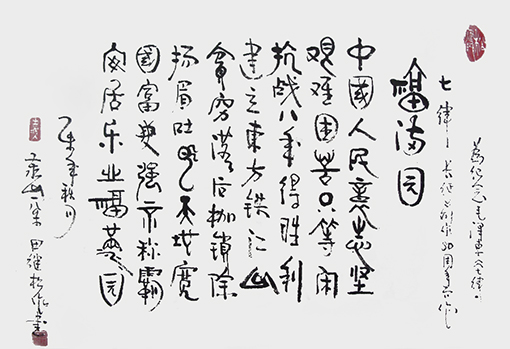 为纪念毛泽东《七律·
长征》创作80周年而作
福满园
中国人民意志坚
艰难困苦只等闲
抗战八年得胜利
建立东方铁江山
贫穷落后枷锁除
扬眉吐气天地宽
国富兵强不称霸
安居乐业福满园
年秋月
田继松作